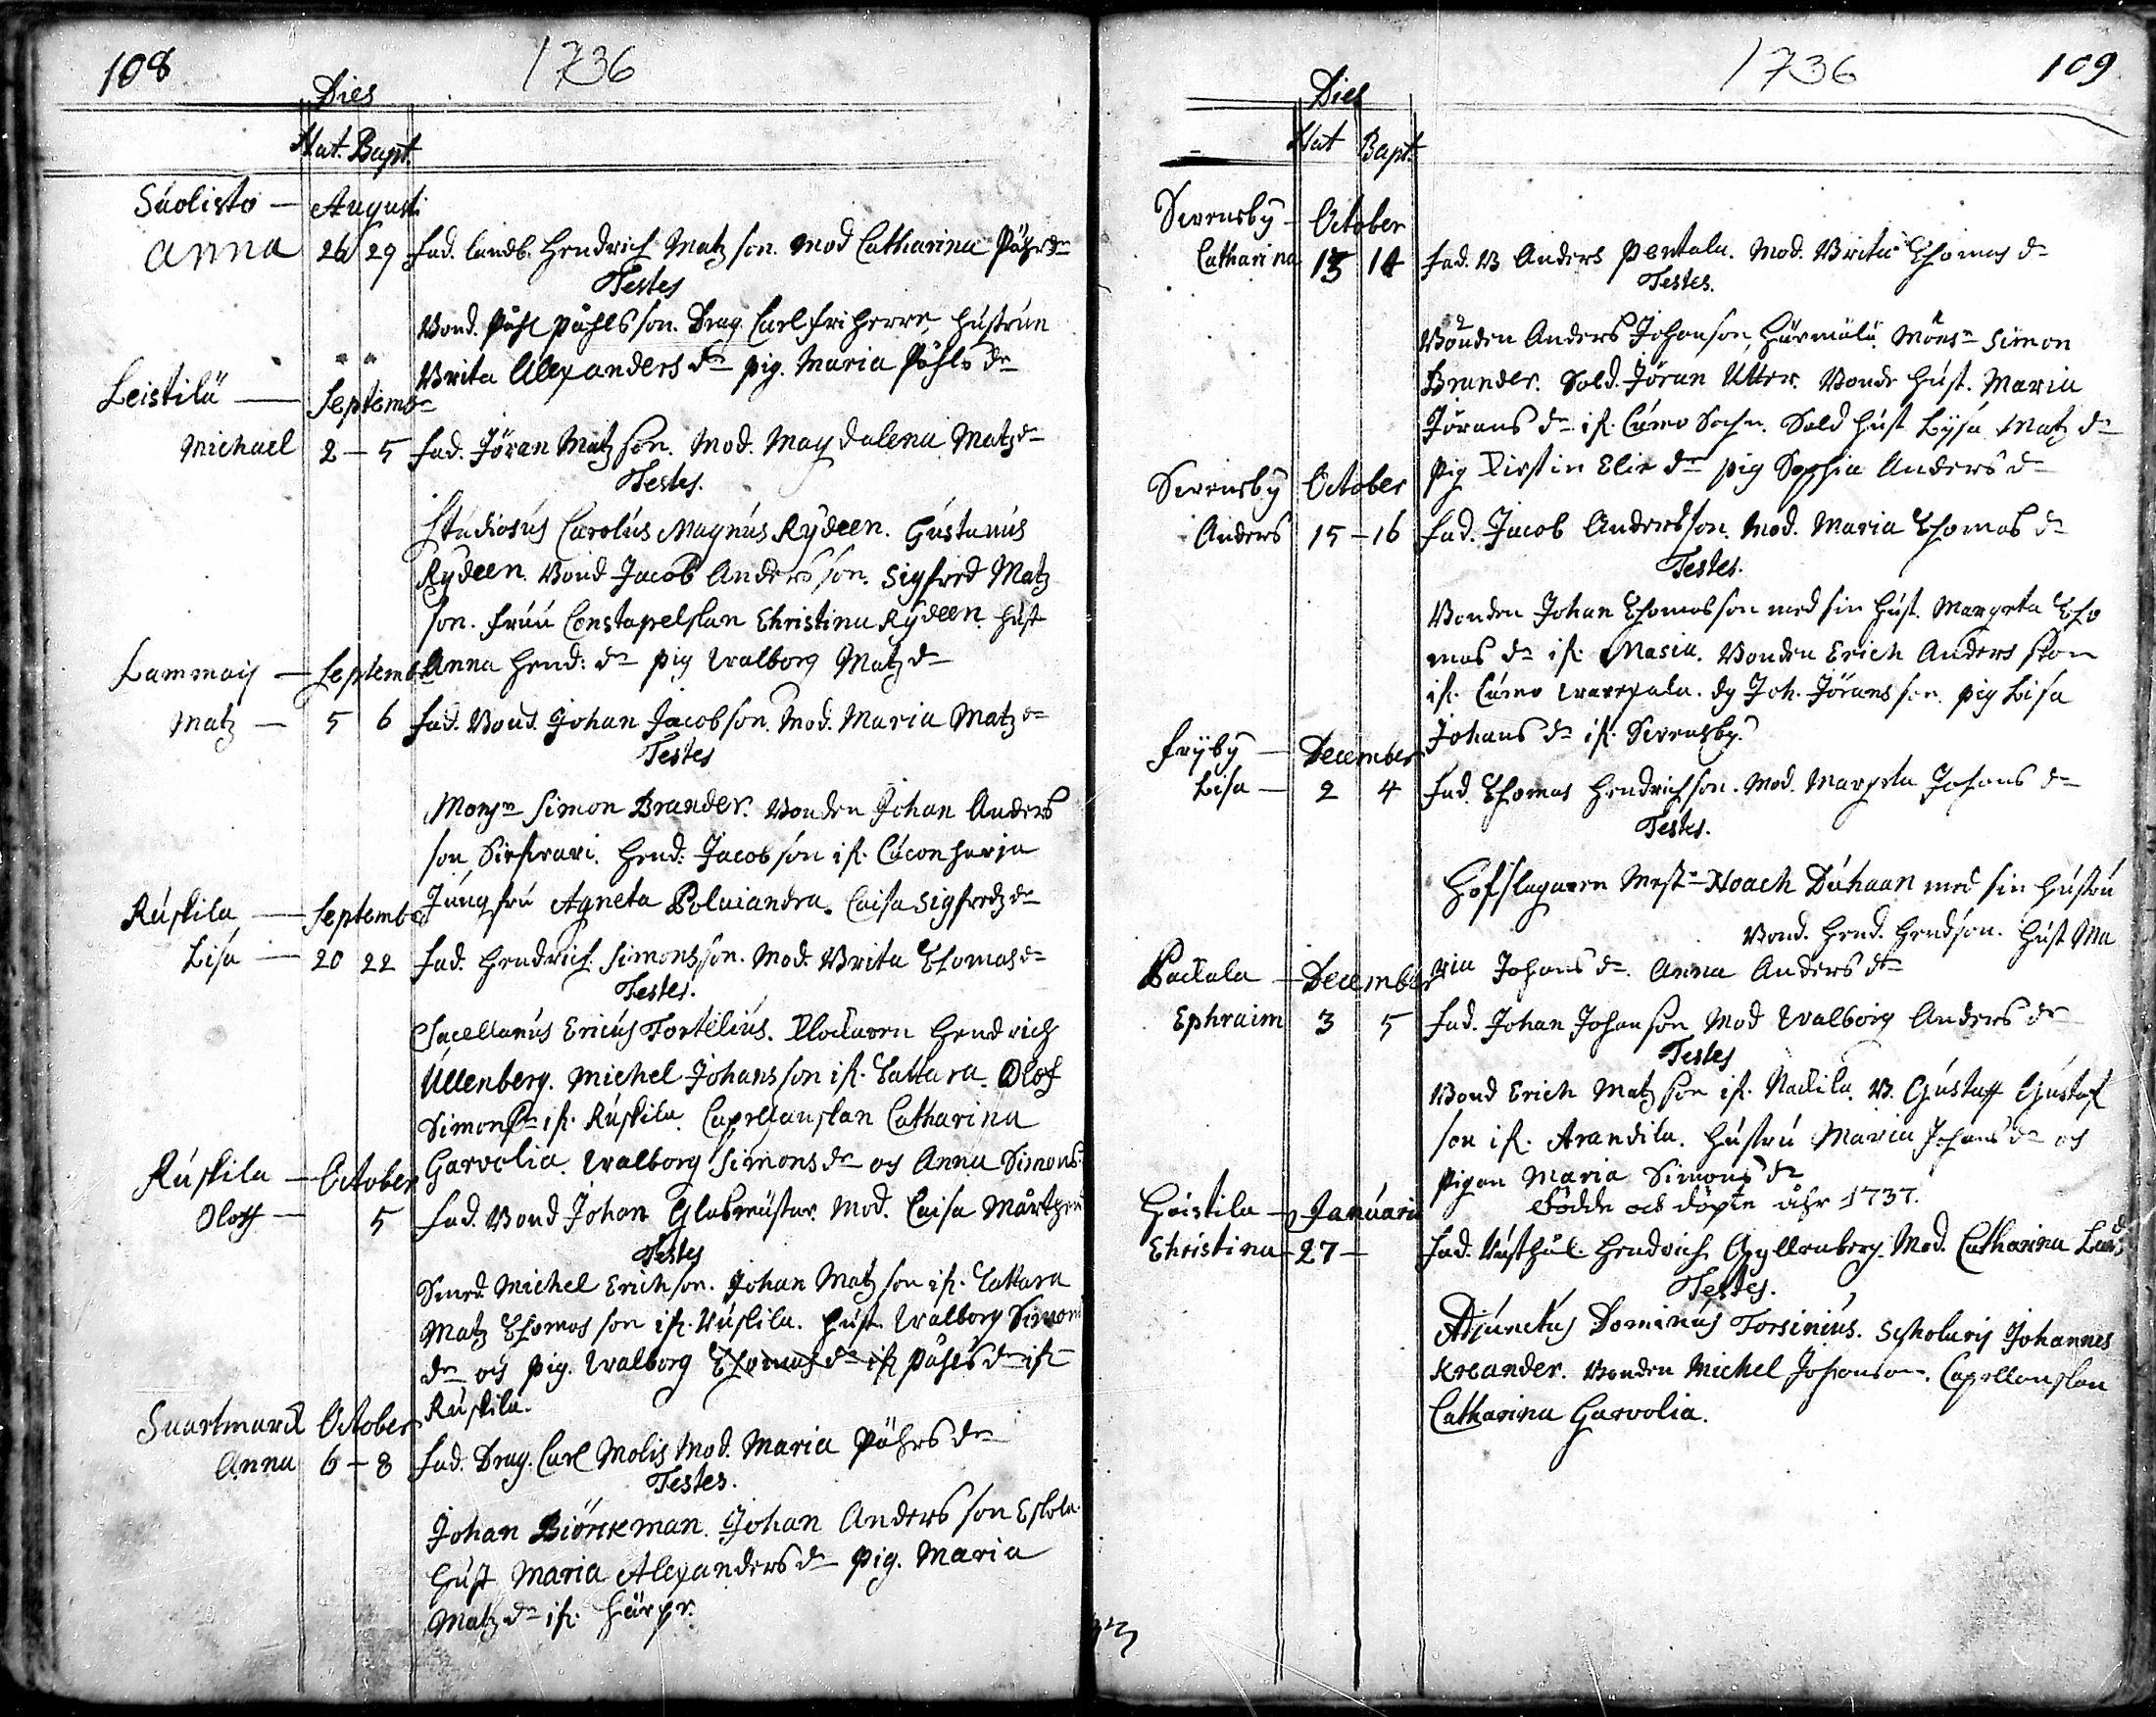 108
1736
Dies
Nat. Bapt.
Suolisto — Augusti
Anna 26 29 Fad. landb. Hendrich Matz son. Mod Catharina Påhrs dr
Testes
Bond. Påhl Påhls son. Drag. Carl friherre, hustrun
Brita Alexanders dr pig. Maria Påhls dr
Leistilä — Septembr
Michael 2 — 5 Fad. Jöran Matz son. Mod. Magdalena Matz dr
Testes.
Studiosus Carolus Magnus Rydeen. Gustavus
Rydeen. Bond Jacob Anders son. Sigfred Matz
son. fruu Constapelskan Christina Rydeen. hust
Anna Hend: dr pig Walborg Matz dr
Lammais — Septemb
Matz — 5 6 Fad. Bond. Johan Jacobson. Mod. Maria Matz dr
Testes
Monsr Simon Brander. Bonden Johan Anders
son Hend: Jacobson if. Cuconharja
Jungfru Agneta Polviandra. Caisa Sigfredz dr
Ruskila — Septemb
Lisa — 20 22 Fad. Hendrich Simonsson. Mod. Brita Thomas dr
Testes.
Sacellanus Ericus Fortelius. Klockaren Hendrich
Ullenberg. Michel Johansson if. Cattara. Olof
Simonss if. Ruskila. Capellanskan Catharina
Garvolia. Walborg Simons dr och Anna Simons
Ruskila — October
Oloff — 5 Fad. Bond Johan Glasmästar. Mod. Caisa Mårtens
Testes
Smed. Michel Erichson. Johan Matz son if. Cattara
Matz Thomas son if. Ruskila. hust. Walborg Simons
dr och pig. Walborg Thomas dr if Påhls dr if
Ruskila.
Suartmarck October
Anna 6 — 8 Fad. Drag. Carl Molis Mod. Maria Påhrs dr
Testes.
Johan Biörkman. Johan Anders son Eskola.
hust Maria Alexanders dr pig. Maria
Matz dr if. Härpr.
1736
109
Dies
Nat Bapt.
Svensby — October
Catharina 13 14 Fad. B Anders Pentala. Mod. Brita Thomas dr
Testes.
Bonden Anders Johanson, Härmälä. Monsr Simon
Brander. Sold. Jöran Utter. Bonde hust. Maria
Jörans dr if. Cumo Sochn. Sold hust Lysa Matz dr
pig Kirstin Elie dr pig Sophia Anders dr
Svensby October
Anders 15 — 16 Fad. Jacob Andersson. Mod. Maria Thomas dr
Testes.
Bonden Johan Thomasson med sin hust. Margeta Tho
mas dr if. Masia. Bonden Erich Anders son
if. Cumo dg Joh. Jörans son. pig Lisa
Johans dr if. Svensby.
Fryby — December
Lisa — 2 4 Fad. Thomas Hendrichson. Mod. Margeta Johans dr
Testes.
Hofslagaren Mestr Noach Duhaan med sin hustru
Bond. Hend. Hendson. hust Ma
ria Johans dr. Anna Anders dr
Packala — December
Ephraim 3 5 Fad. Johan Johanson Mod Walborg Anders dr
Testes
Bond Erich Matz son if. Nackila. B. Gustaff Gustaf
son if. Arandila. hustru Maria Johans dr och
pigan Maria Simons dr
Födde och döpte åhr 1737.
Hoistila — Januarii
Christina — 27 — Fad. Rusthål. Hendrich Gyllenberg. Mod. Catharina
Testes.
Adjunctus Dominus Torsinius. Scholaris Johannes
Kreander. Bonden Michel Johanson. Capellanskan
Catharina Garvolia.